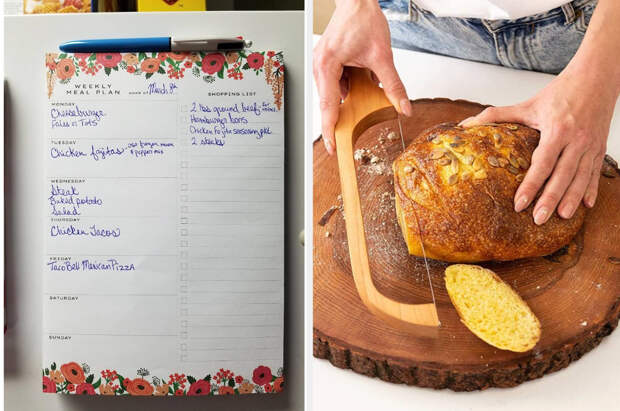 WEEKLY
MEAL PLAN
week of March 8th
MONDAY
Cheeseburger
Fries or Tots
TUESDAY
Chicken fajitas
WEDNESDAY
Steak
Baked potato
Salad
THURSDAY
Chicken Tacos
FRIDAY
Taco Bell Mexican Pizza
SATURDAY
SUNDAY
SHOPPING LIST
2 lbs ground beef
Hamburger buns
Chicken fajita seasoning pkt
2 steaks